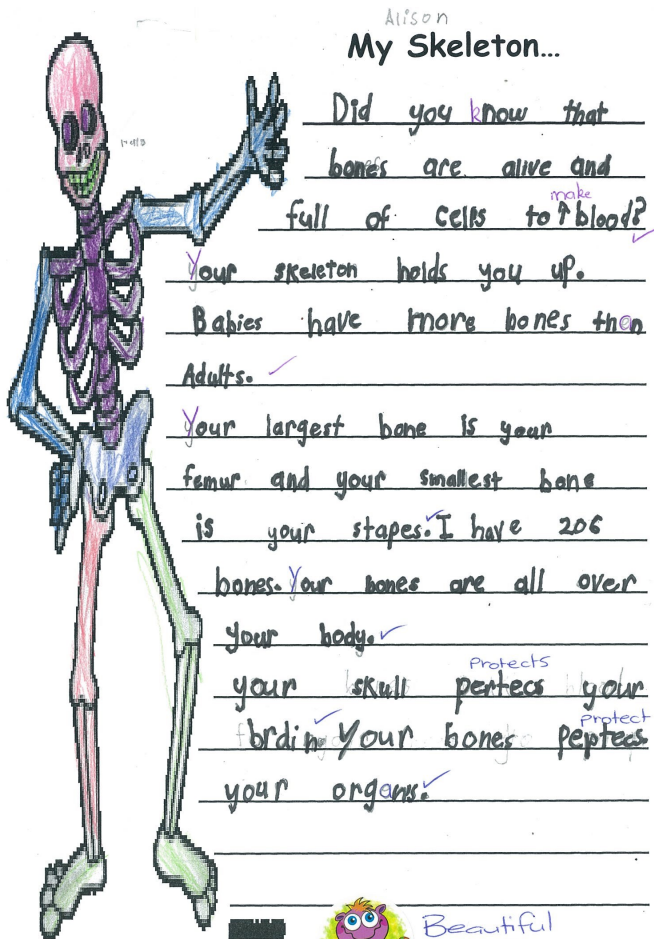 Alison
My Skeleton...
Did you know that
bones are alive and
make
full of cells to ↑ blood?
Your skeleton holds you up.
Babies have more bones then
Adults.
Your largest bone is your
femur and your smallest bone
is your stapes. I have 206
bones. Your bones are all over
your body.
Protects
your skull pertecs your
protect
brdin. Your bones peptecs
your organs.
Beautiful